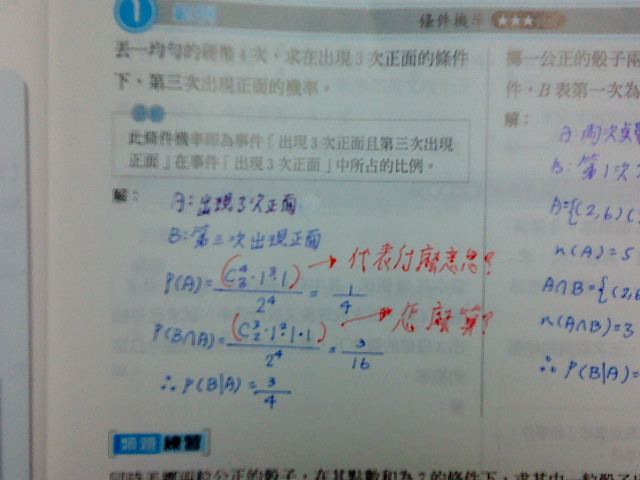 1
條件機率 ★★★
丟一均勻的硬幣4次,求在出現3次正面的條件
下,第三次出現正面的機率。
此條件機率即為事件「出現3次正面且第三次出現
正面」在事件「出現3次正面」中所占的比例。
解:
A:出現3次正面
B:第三次出現正面
P(A)=(C⁴₃·1³·1)/2⁴=1/4 → 代表什麼意思?
P(B∩A)=(C³₂·1²·1·1)/2⁴=3/16 → 怎麼算?
∴P(B|A)=3/4
類題 練習
擲一公正的骰子兩
件,B表第一次為
解:
A:兩次
B:第1次
A={(2,6)(
n(A)=5
A∩B={(2,6
n(A∩B)=3
∴P(B|A)=